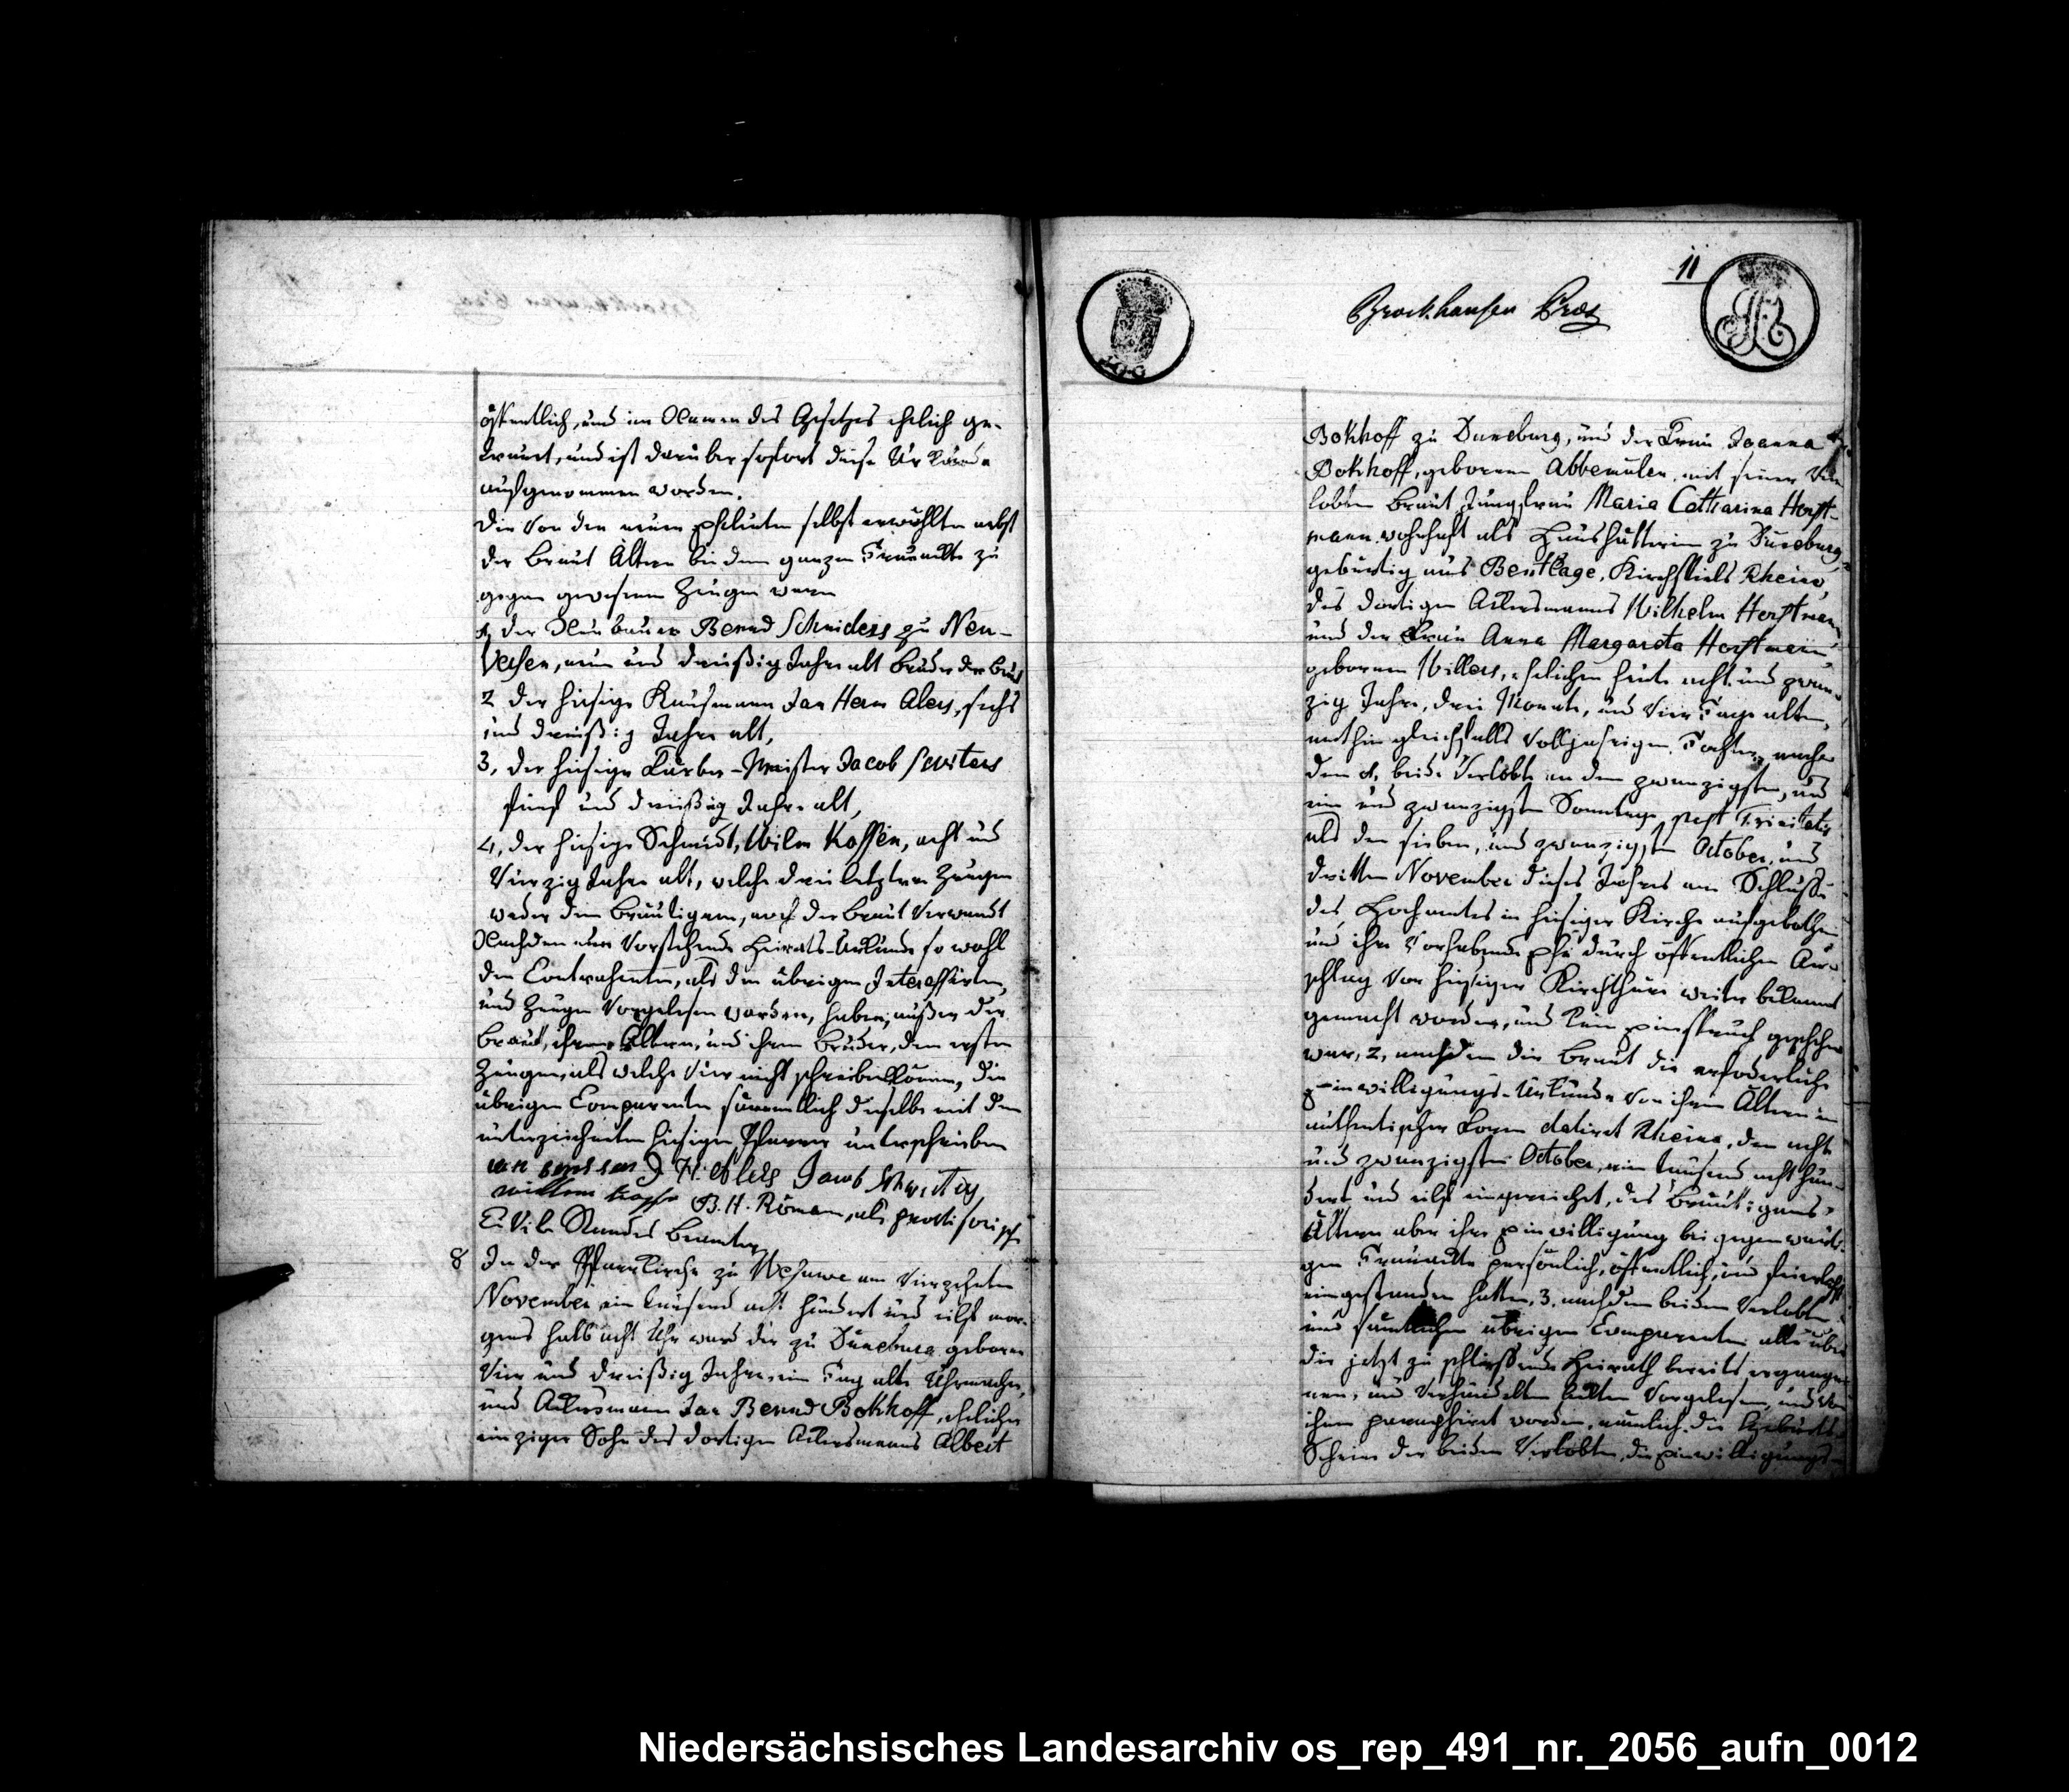 öffentlich, und im Namen des Gesetzes ehelich ge-
traut, und ist darüber sofort diese Urkunde
aufgenommen worden.
Die von den neuen Eheleuten selbst erwählte nebst
der Braut Ältern bei dem ganzen Trauackte zu
gegen gewesenen Zeugen waren
1, der Neubauer Bernd Schniders zu Neu-
Versen, neun und dreißig Jahre alt Bruder der Braut
2 der hiesige Kaufmann Jan Herm Alers, sechs
und dreißig Jahre alt,
3, der hiesige Färber-Meister Jacob
fünf und dreißig Jahre alt,
4, der hiesige Schmidt, Wilm Kossen, acht und
Vierzig Jahre alt, welche drei letztern Zeugen
weder dem Bräutigam, noch der Braut verwandt
Nachdem nun Vorstehende Heirats-Urkunde so wohl
den Contrahenten, als den übrigen Interessirten,
und Zeugen Vorgelesen worden, haben, außer der
Braut, ihren Ältern, und ihrem Bruder, dem ersten
Zeugen, als welche Vier nicht schreiben können, die
übrigen Comparenten sämmtlich dieselbe mit dem
unterzeichneten hiesigen Pfarrer unterschrieben
J H: Alers Jacob
willem B. H. Römann, als provisorisch
Civil Standes Beamter
8 In der Pfarrkirche zu Wesuwe am Vierzehnten
November ein tausend acht hundert und eilf mor-
gens halb acht Uhr ward der zu Duneburg geborne
Vier und dreißig Jahre, ein Tag alte Uhrmacher,
und Ackersmann Jan Bernd Bokhoff, ehelicher
einziger Sohn des dortigen Ackersmanns Albert
11
Brockhausen Præs
Bokhoff zu Duneburg, und der Frau Joanna
Bokhoff, gebornen Abbemulen, mit seiner Ver-
lobten Braut Jungfrau Maria Catharina Horst-
mann wohnhaft als Haushälterin zu Duneburg,
gebürtig aus Bentlage, Kirchspiels Rheine,
des dortigen Ackersmanns Wilhelm Horstmann
und der Frau Anna Margareta Horstmann
gebornen Willers, ehelichen heute acht und zwan-
zig Jahre, drei Monate, und Vier Tage alten,
mithin gleichfalls Volljährigen Tochter, nach
dem 1, beide Verlobte an dem zwanzigsten, und
ein und zwanzigsten Sonntage post Trinitatis
als den sieben, und zwanzigsten October, und
dritten November dieses Jahres am Schluße
des Hochamtes in hiesiger Kirche aufgebothen
und ihre Vorhabende Ehe durch öffentlichen An-
schlag Vor hiesiger Kirchthüre weiter bekannt
gemacht worden, und kein Einspruch geschehen
war, 2, nachdem die Braut die erforderliche
Einwilligungs-Urkunde Von ihren Ältern in
authentischer Form datirt Rheine, den acht
und zwanzigsten October, ein tausend acht hun-
dert und eilf eingereicht, des Bräutigams
Ältern aber ihre Einwilligung bei gegenwärti-
gen Trauackte persönlich, öffentlich, und feierlich
eingestanden hatten, 3, nachdem beiden Verlobten
und sämtlichen übrigen Comparenten alle über
die jetzt zu schließende Heirath bereits ergange-
nen, und Verhandelten Ackten Vorgelesen, und von
ihnen paraphiret worden, nämlich die Geburts-
Scheine der beiden Verlobten, die Einwilligungs-
Niedersächsisches Landesarchiv os_rep_491_nr._2056_aufn_0012